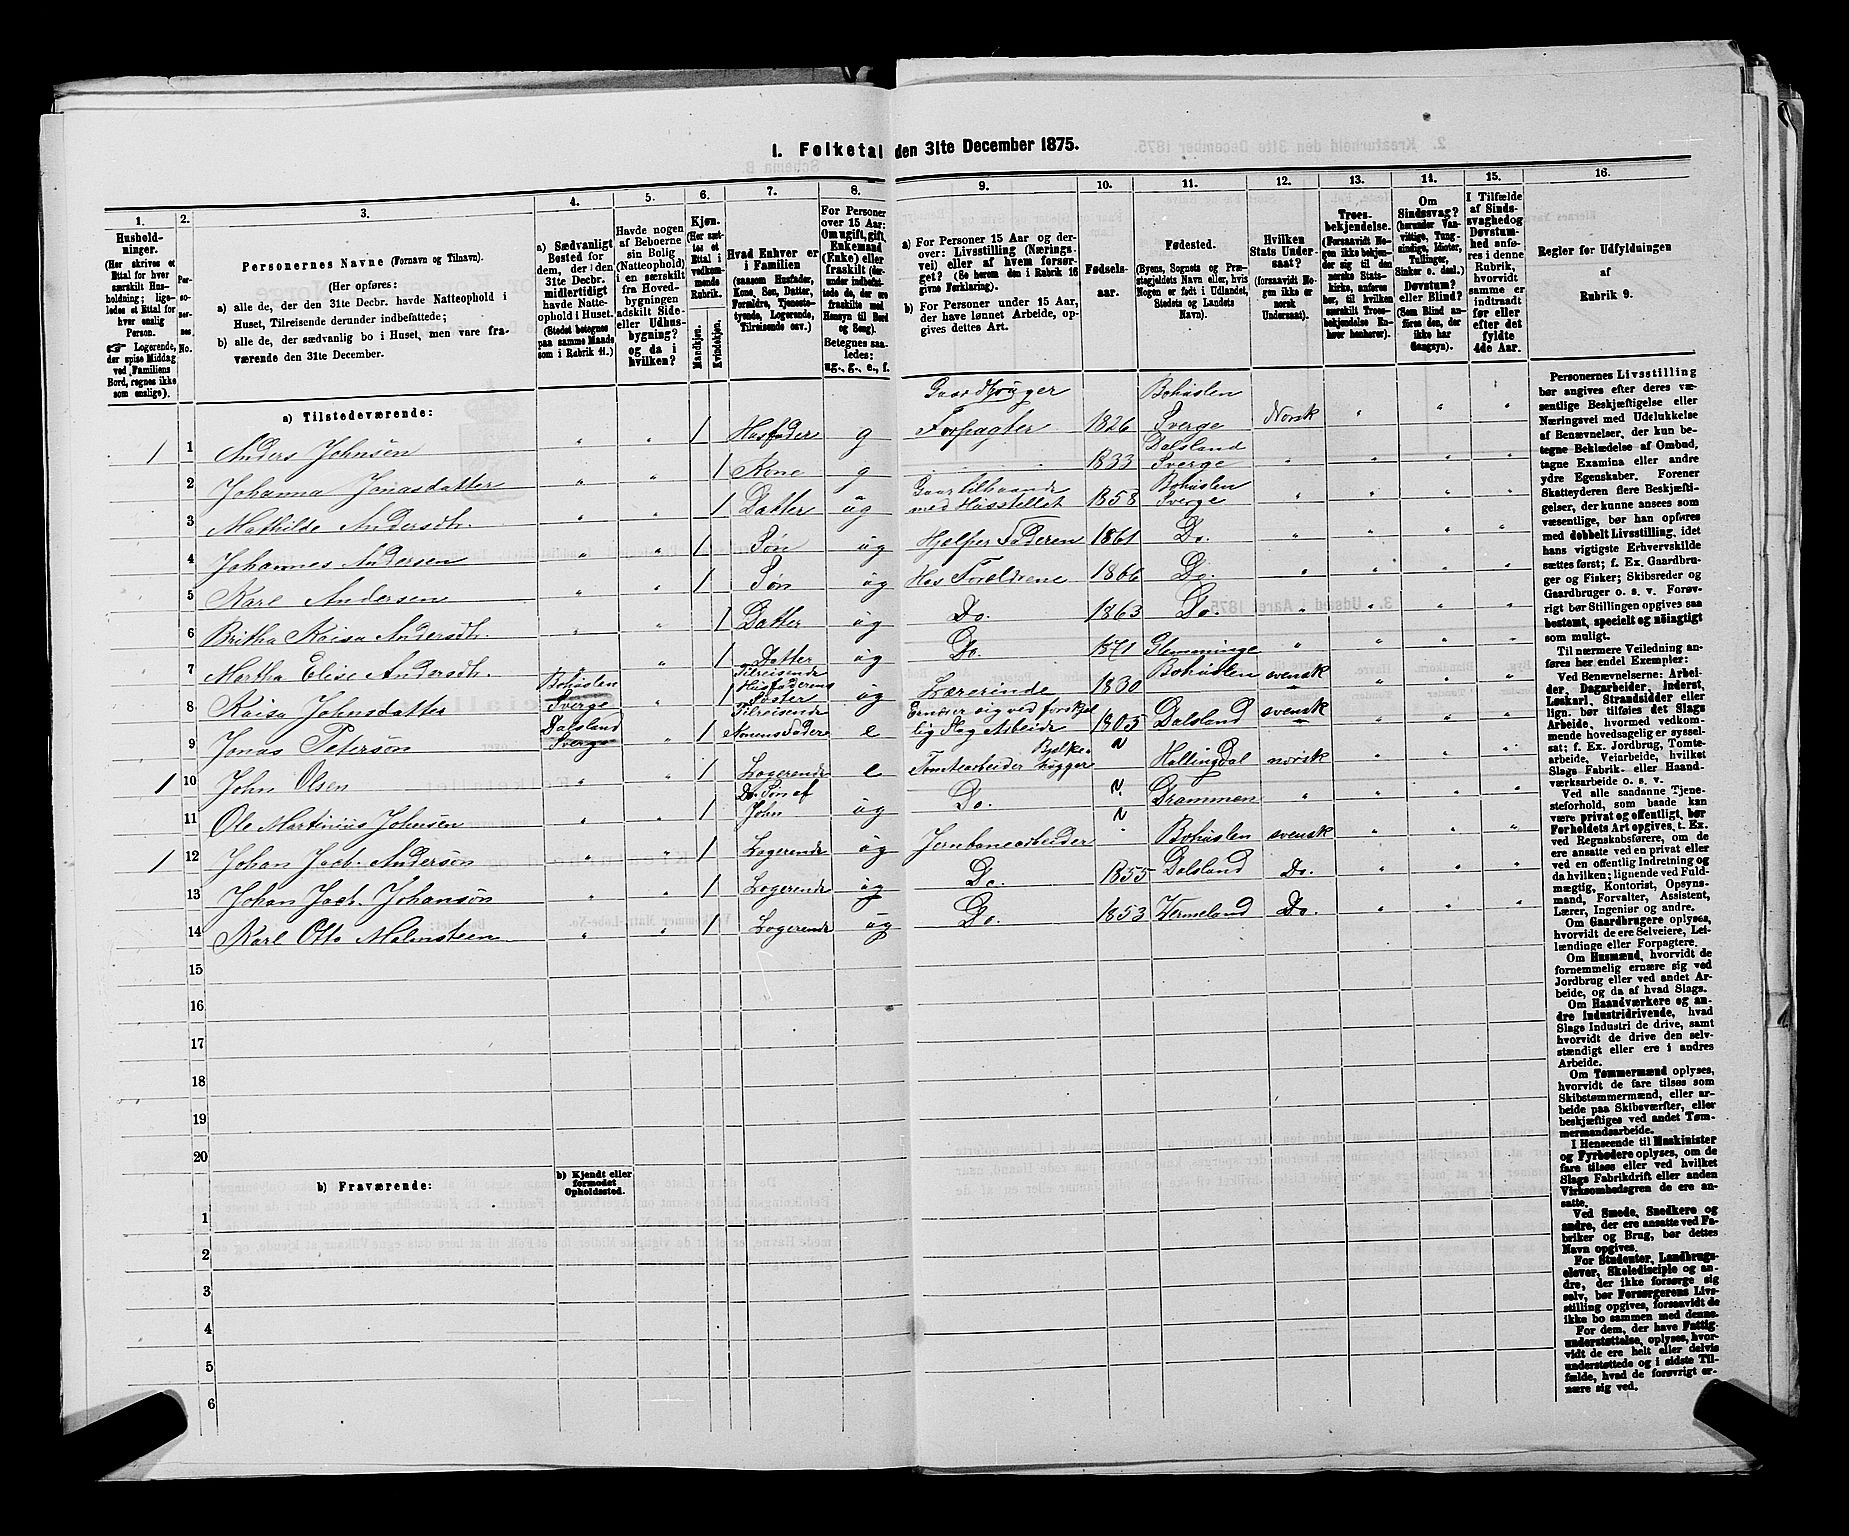 I. Folketal den 31te December 1875.
1.
Hushold-
ninger.
(Her skrives et
Ettal for hver
særskilt Hus-
holdning; lige-
ledes et Ettal for
hver enslig
Person.
☞ Logerende,
der spise Middag
ved Familiens
Bord, regnes ikke
som enslige).
2.
Per-
so-
ner-
nes
No.
3.
Personernes Navne (Fornavn og Tilnavn).
(Her opføres:
a) alle de, der den 31te Decbr. havde Natteophold i
Huset, Tilreisende derunder indbefattede;
b) alle de, der sædvanlig bo i Huset, men vare fra-
værende den 31te December.
4.
a) Sædvanligt
Bosted for
dem, der den
31te Decbr.
midlertidigt
havde Natte-
ophold i Huset.
(Stedet betegnes
paa samme Maade
som i Rubrik 11.)
5.
Havde nogen
af Beboerne
sin Bolig
(Natteophold)
i en særskilt
fra Hoved-
bygningen
adskilt Side-
eller Udhus-
bygning?
og da i
hvilken?
6.
Kjøn.
(Her sæt-
tes et
Ettal i
vedkom-
mende
Rubrik.
Mandkjøn.
Kvindekjøn.
7.
Hvad Enhver er
i Familien
(saasom Husfader,
Kone, Søn, Datter,
Forældre, Tjeneste-
tyende, Logerende,
Tilreisende osv.)
8.
For Personer
over 15 Aar:
Om ugift, gift,
Enkemand
(Enke) eller
fraskilt (der-
under indbefat-
tede de, der ere
fraskilte med
Hensyn til Bord
og Seng).
Betegnes saa-
ledes:
ug., g., e., f.
9.
a) For Personer 15 Aar og der-
over: Livsstilling (Nærings-
vei) eller af hvem forsør-
get? (Se herom den i Rubrik 16
givne Forklaring).
b) For Personer under 15 Aar,
der have lønnet Arbeide, op-
gives dettes Art.
10.
Fødsels-
aar.
11.
Fødested.
(Byens, Sognets og Præ-
stegjeldets Navn eller, hvis
Nogen er født i Udlandet,
Stedets og Landets
Navn).
12.
Hvilken
Stats Under-
saat?
(forsaavidt No-
gen ikke er
norsk
Undersaat).
13.
Troes-
bekjendelse.
(Forsaavidt No-
gen ikke bekjen-
der sig til den
norske Stats-
kirke, anføres
her, til hvilken
særskilt Troes-
bekjendelse En-
hver henhører).
14.
Om
Sindssvag?
(herunder Van-
vittige, Tung-
sindige, Idioter,
Tullinger,
Sinker o. desl.)
Døvstum?
eller Blind?
(Som Blind an-
føres den, der
ikke har
Gangsyn).
15.
I Tilfælde
af Sinds-
svaghed og
Døvstum-
hed anfø-
res i denne
Rubrik,
hvorvidt
samme er
indtraadt
før eller
efter det
fyldte
4de Aar.
16.
Regler for Udfyldningen
af
Rubrik 9.
a) Tilstedeværende:
1 1 Anders Johnsen " " 1 Husfader g Gaardbruger Forpagter 1826 Bohuslen Sverge Norsk " " "
2 Johanna Jonasdatter " " 1 Kone g 1833 Dalsland Sverge " " " "
3 Mathilde Andersdtr. " " 1 Datter ug Gaar tilhaande med Husstellet 1858 Bohuslen Sverge " " " "
4 Johannes Andersen " " 1 Søn ug Hjelper Faderen 1861 Do. " " " "
5 Karl Andersen " " 1 Søn ug Hos Forældrene 1866 Do. " " " "
6 Britha Kaisa Andersdtr. " " 1 Datter ug Do. 1863 Do. " " " "
7 Martha Elise Andersdtr. " " 1 Datter ug Do. 1871 Glemminge " " " "
8 Kaisa Johnsdatter Bohuslen Sverge " 1 Tilreisende Husfaderens Søster ug Lærerinde 1830 Bohuslen svensk " " "
9 Jonas Peterson Dalsland Sverge " 1 Tilreisende Konens Fader e Ernærer sig ved forskjellig Slag Arbeide 1805 Dalsland svensk " " "
1 10 John Olsen " " 1 Logerende e Tomtearbeider Bjelkehugger ? Hallingdal norsk " " "
11 Ole Martinius Johnsen " " 1 Do. Søn af John ug Do. ? Drammen " " " "
1 12 Johan Jacb. Anderson " " 1 Logerende ug Jernbanearbeider ? Bohuslen svensk " " "
13 Johan Jacb. Johanson " " 1 Logerende ug Do. 1855 Dalsland Do. " " "
14 Karl Otto Malmsteen " " 1 Logerende ug Do. 1853 Vermeland Do. " " "
15
16
17
18
19
20
b) Fraværende:
b) Kjendt eller
formodet
Opholdssted.
1
2
3
4
5
6
Personernes Livsstilling
bør angives efter deres væ-
sentlige Beskjæftigelse eller
Næringsvei med Udelukkelse
af Benævnelser, der kun be-
tegne Beklædelse af Ombud,
tagne Examina eller andre
ydre Egenskaber. Forener
Skatteyderen flere Beskjæfti-
gelser, der kunne ansees som
væsentlige, bør han opføres
med dobbelt Livsstilling, idet
hans vigtigste Erhvervskilde
sættes først; f. Ex. Gaardbru-
ger og Fisker; Skibsreder og
Gaardbruger o. s. v. Forøv-
rigt bør Stillingen opgives saa
bestemt, specielt og nøiagtigt
som muligt.
Til nærmere Veiledning an-
føres her endel Exempler:
Ved Benævnelserne: Arbei-
der, Dagarbeider, Inderst,
Løskarl, Strandsidder eller
lign. bør tilføies det Slags
Arbeide, hvormed vedkom-
mende hovedsagelig er syssel-
sat; f. Ex. Jordbrug, Tomte-
arbeide, Veiarbeide, hvilket
Slags Fabrik- eller Haand-
værksarbeide o. s. v.
Ved alle saadanne Tjene-
steforhold, som baade kan
være privat og offentligt, bør
Forholdets Art opgives, t. Ex.
ved Regnskabsførere, om de
ere ansatte ved en privat eller
ved en offentlig Indretning og
da hvilken; lignende ved Fuld-
mægtig, Kontorist, Opsyns-
mand, Forvalter, Assistent,
Lærer, Ingeniør og andre.
Om Gaardbrugere oplyses,
hvorvidt de ere Selveiere, Lei-
lændinge eller Forpagtere.
Om Husmænd, hvorvidt de
fornemmelig ernære sig ved
Jordbrug eller ved andet Ar-
beide, og da af hvad Slags.
Om Haandværkere og an-
dre Industridrivende, hvad
Slags Industri de drive, samt
hvorvidt de drive den selv-
stændigt eller ere i andres
Arbeide.
Om Tømmermænd oplyses,
hvorvidt de fare tilsøs som
Skibstømmermænd, eller ar-
beide paa Skibsværfter, eller
beskjæftiges ved andet Tøm-
mermandsarbeide.
I Henseende til Maskinister
og Fyrbødere oplyses, om de
fare tilsøs eller ved hvilket
Slags Fabrikdrift eller anden
Virksomhedsgren de ere an-
satte.
Ved Smede, Snedkere og
andre, der ere ansatte ved Fa-
briker og Brug, bør dettes
Navn opgives.
For Studenter, Landbrugs-
elever, Skoledisciple og an-
dre, der ikke forsørge sig
selv, bør Forsørgerens Livs-
stilling opgives, forsaavidt de
ikke bo sammen med denne.
For dem, der have Fattig-
understøttelse, oplyses, hvor-
vidt de ere helt eller delvis
understøttede og i sidste Til-
fælde, hvad de forøvrigt er-
nære sig ved.